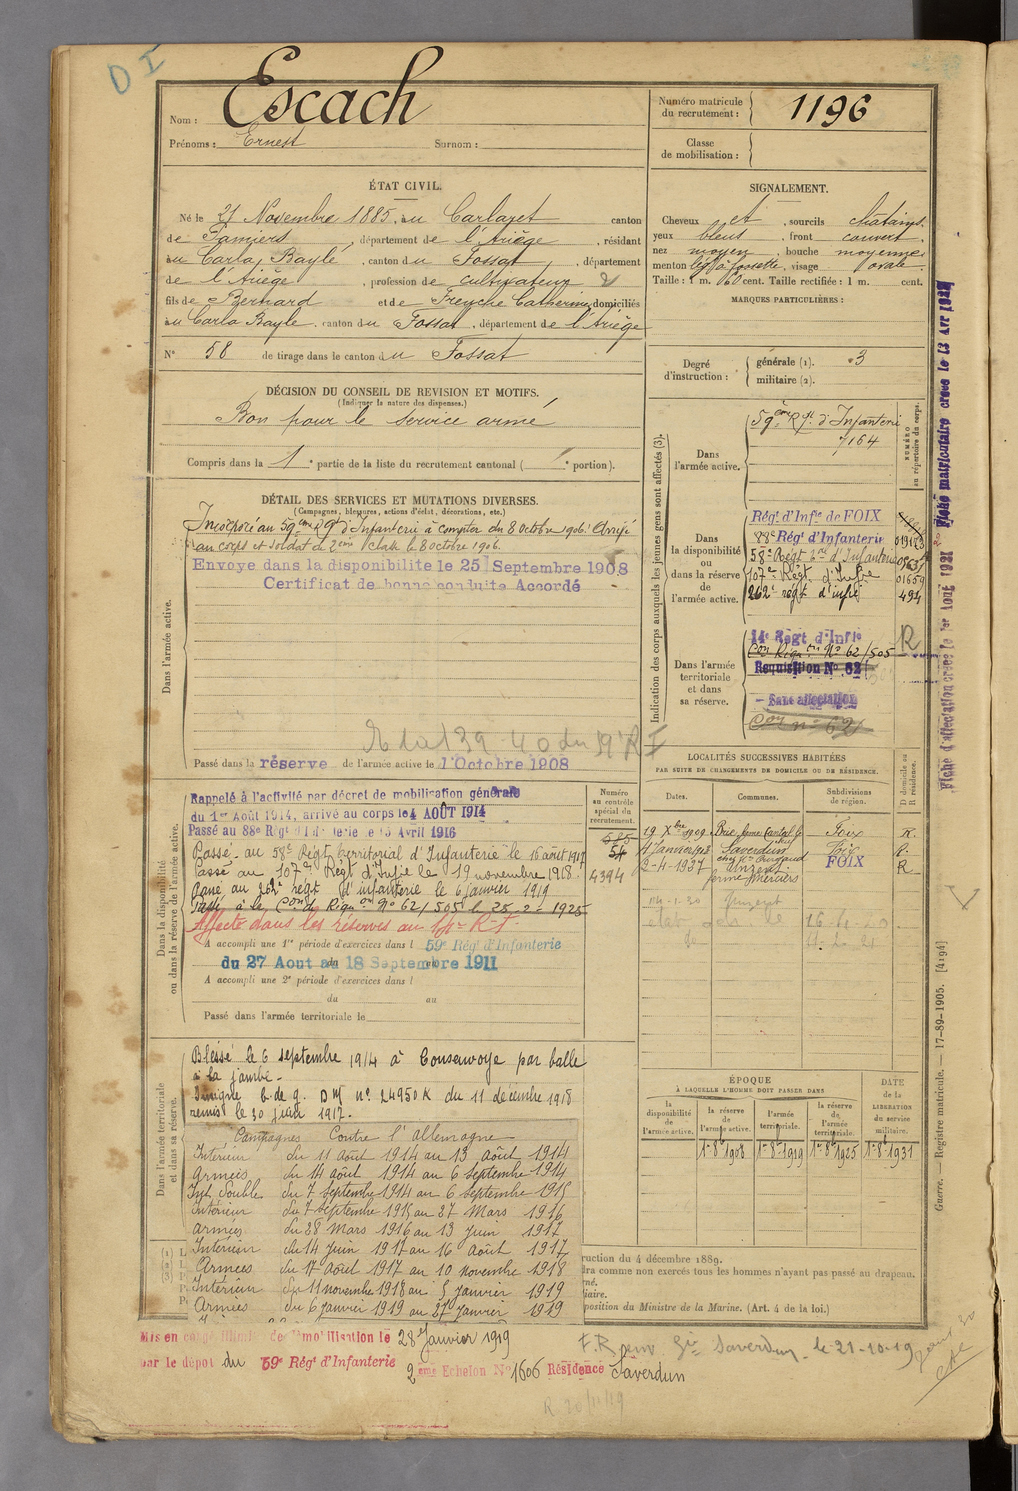 D I
Nom : Escach
Prénoms : Ernest Surnom :
Numéro matricule du recrutement : 1196
Classe de mobilisation :
ÉTAT CIVIL.
Né le 21 Novembre 1885, au Carlaret canton
de Pamiers, département de l'Ariège, résidant
au Carla Bayle, canton du Fossat, département
de l'Ariège, profession de cultivateur
fils de Bernard et de Freyche Catherine, domiciliés
au Carla Bayle, canton du Fossat, département de l'Ariège
N° 58 de tirage dans le canton du Fossat
SIGNALEMENT.
Cheveux et, sourcils châtains.
yeux bleus, front couvert,
nez moyen, bouche moyenne,
menton à fossette, visage ovale.
Taille : 1 m. 60 cent. Taille rectifiée : 1 m. cent.
MARQUES PARTICULIÈRES :
Degré d'instruction : générale (1). 3
militaire (2).
DÉCISION DU CONSEIL DE REVISION ET MOTIFS.
(Indiquer la nature des dispenses.)
Bon pour le service armé
Compris dans la 1e partie de la liste du recrutement cantonal ( e portion).
DÉTAIL DES SERVICES ET MUTATIONS DIVERSES.
(Campagnes, blessures, actions d'éclat, décorations, etc.)
Dans l'armée active.
Incorporé au 59ème Rgt d'Infanterie à compter du 8 Octobre 1906. Arrivé
au corps et soldat de 2ème classe le 8 octobre 1906.
Envoyé dans la disponibilité le 25 Septembre 1908
Certificat de bonne conduite Accordé
Passé dans la réserve de l'armée active le 1 Octobre 1908
Indication des corps auxquels les jeunes gens sont affectés (3).
NUMÉRO au répertoire du corps.
Dans l'armée active.
59ème Rgt d'Infanterie
7164
Dans la disponibilité ou dans la réserve de l'armée active.
Régt d'Infie de FOIX
88e Régt d'Infanterie 019123
58e Regt d'Infanterie
107e Regt d'Infie 01659
262e régt d'infie 494
Dans l'armée territoriale et dans sa réserve.
14e Regt d'Infie R
Con Riqn on No 62/505
Requisition No 62
Sans affectation
Con no 62
Fiche matriculaire créée le 13 Avr
Fiche d'affectation créée le 1er Août 1931
Dans la disponibilité ou dans la réserve de l'armée active.
Rappelé à l'activité par décret de mobilisation générale
du 1er Août 1914, arrivé au corps le 4 AOÛT 1914
Passé au 88e Régt d'Infanterie le 15 Avril 1916
Passé au 58e Régt territorial d'Infanterie le 16 août 1917
Passé au 107e Régt d'Infie le 19 novembre 1918
Passé au 262e régt d'infanterie le 6 janvier 1919
Passé à la Con de Riqn on No 62/505 le 25-2-1925
Affecté dans les réserves au 14e R-I
A accompli une 1re période d'exercices dans l 59e Régt d'Infanterie
du 27 Aout au 18 Septembre 1911
A accompli une 2e période d'exercices dans l
du au
Passé dans l'armée territoriale le
Numéro au contrôle spécial du recrutement.
585
54
4394
LOCALITÉS SUCCESSIVES HABITÉES
PAR SUITE DE CHANGEMENTS DE DOMICILE OU DE RÉSIDENCE.
Dates. Communes. Subdivisions de région. D domicile ou R résidence.
19 Xbre 1909 Foix R.
4 Janvier 1913 Saverdun Foix R.
2-4-1937 FOIX R
Dans l'armée territoriale et dans sa réserve.
Blessé le 6 septembre 1914 à Consenvoye par balle
à la jambe.
Insigne b. de g. DM no 24950 K du 11 décembre 1918
remis le 30 juin 1917.
Campagnes Contre l'allemagne
Intérieur du 11 août 1914 au 13 août 1914
Armées du 14 août 1914 au 6 septembre 1914
Int. Double du 7 septembre 1914 au 6 septembre 1915
Intérieur du 7 septembre 1915 au 27 Mars 1916
Armées du 28 Mars 1916 au 13 juin 1917
Intérieur du 14 juin 1917 au 16 août 1917
Armées du 17 août 1917 au 10 novembre 1918
Intérieur du 11 novembre 1918 au 5 janvier 1919
Armées du 6 janvier 1919 au 27 janvier 1919
ÉPOQUE
À LAQUELLE L'HOMME DOIT PASSER DANS
la disponibilité de l'armée active. la réserve de l'armée active. l'armée territoriale. la réserve de l'armée territoriale.
DATE de la LIBÉRATION du service militaire.
1er 8bre 1908 1er 8bre 1919 1er 8bre 1925 1er 8bre 1931
ruction du 4 décembre 1889.
dra comme non exercés tous les hommes n'ayant pas passé au drapeau.
né.
iaire.
position du Ministre de la Marine. (Art. 4 de la loi.)
Guerre. — Registre matricule. — 17-89-1905. [4194]
Mis en congé illimité de démobilisation le 28 Janvier 1919
par le dépot du 59e Régt d'Infanterie
2eme Echelon No 1606 Résidence Saverdun
Saverdun, le 21-10-19